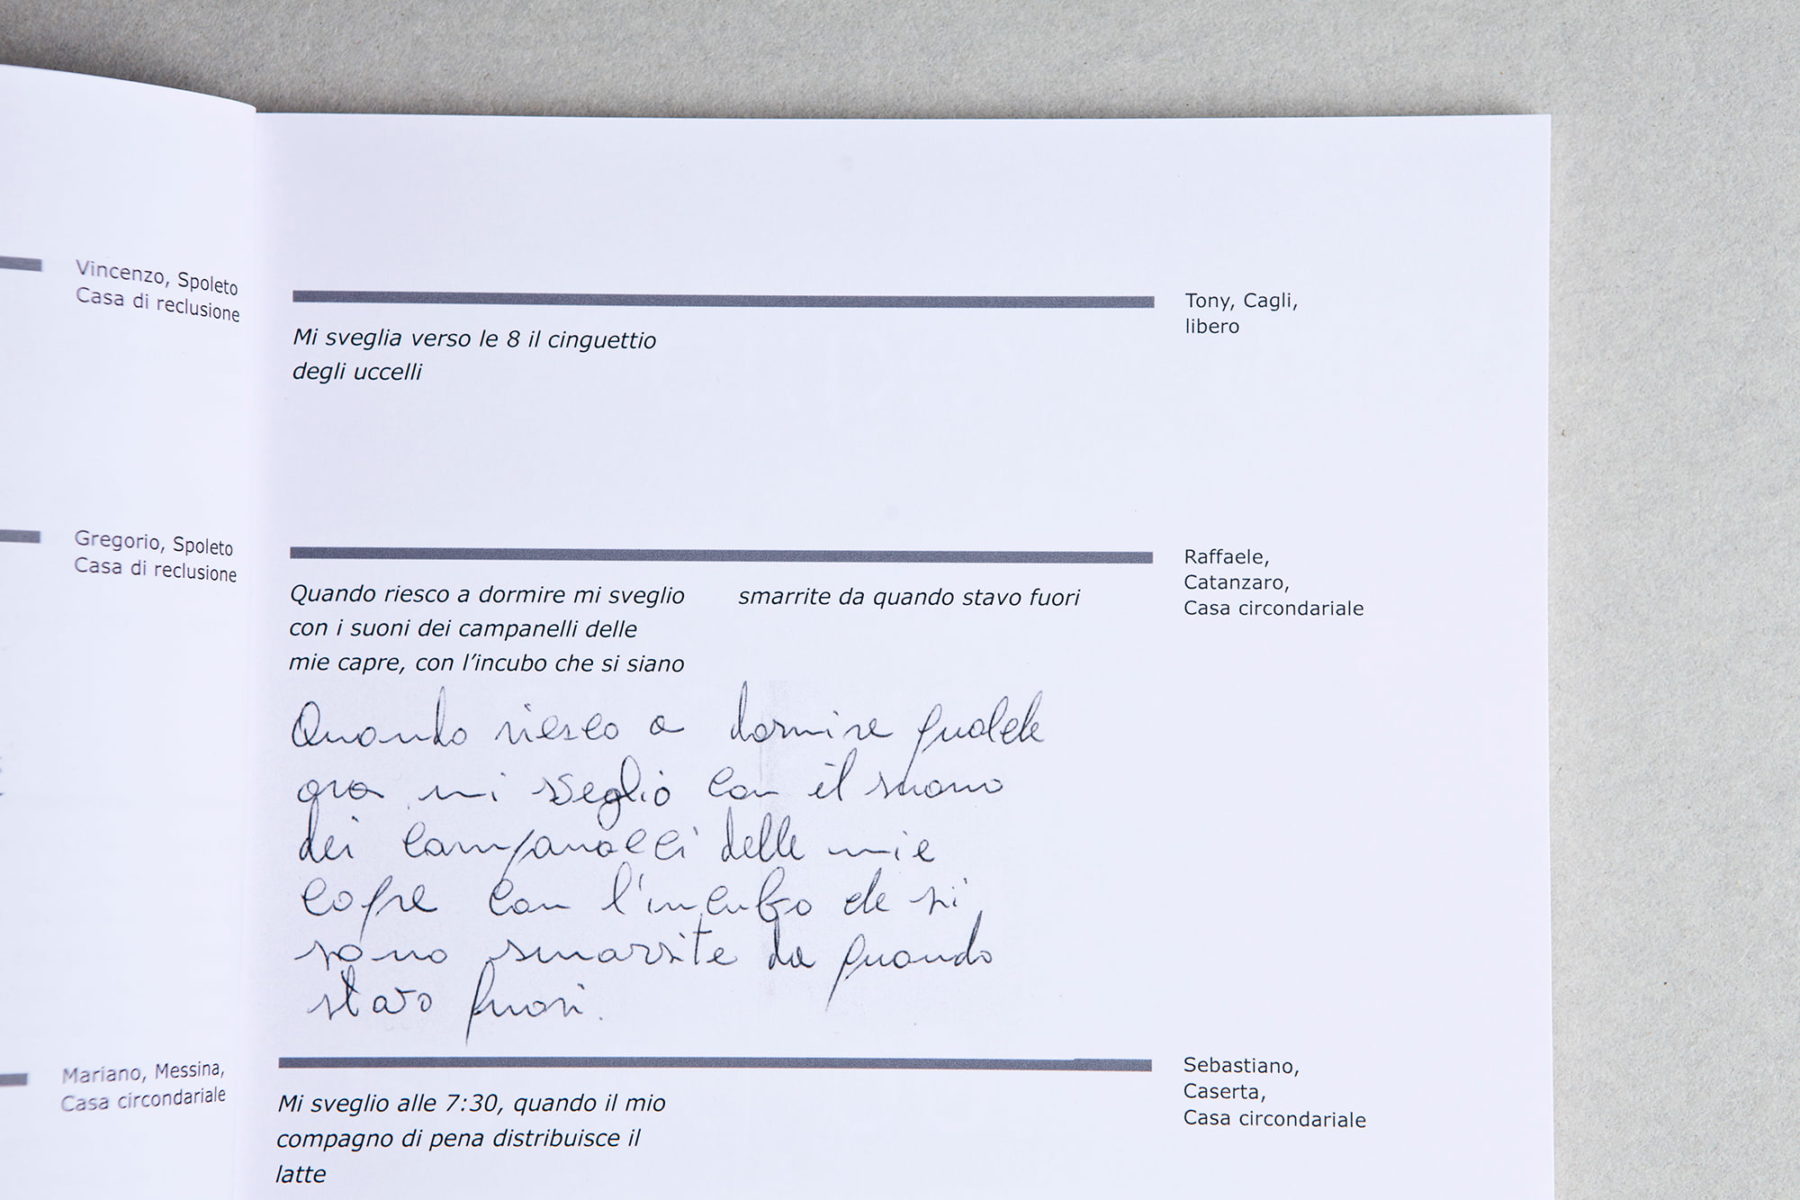 Vincenzo, Spoleto
Casa di reclusione
Gregorio, Spoleto
Casa di reclusione
Mariano, Messina,
Casa circondariale
Tony, Cagli,
libero
Mi sveglia verso le 8 il cinguettio
degli uccelli
Raffaele,
Catanzaro,
Casa circondariale
Quando riesco a dormire mi sveglio
con i suoni dei campanelli delle
mie capre, con l'incubo che si siano
smarrite da quando stavo fuori
Quando riesco a dormire qualche
ora mi sveglio con il suono
dei campanacci delle mie
capre con l'incubo che si
sono smarrite da quando
stavo fuori.
Sebastiano,
Caserta,
Casa circondariale
Mi sveglio alle 7:30, quando il mio
compagno di pena distribuisce il
latte